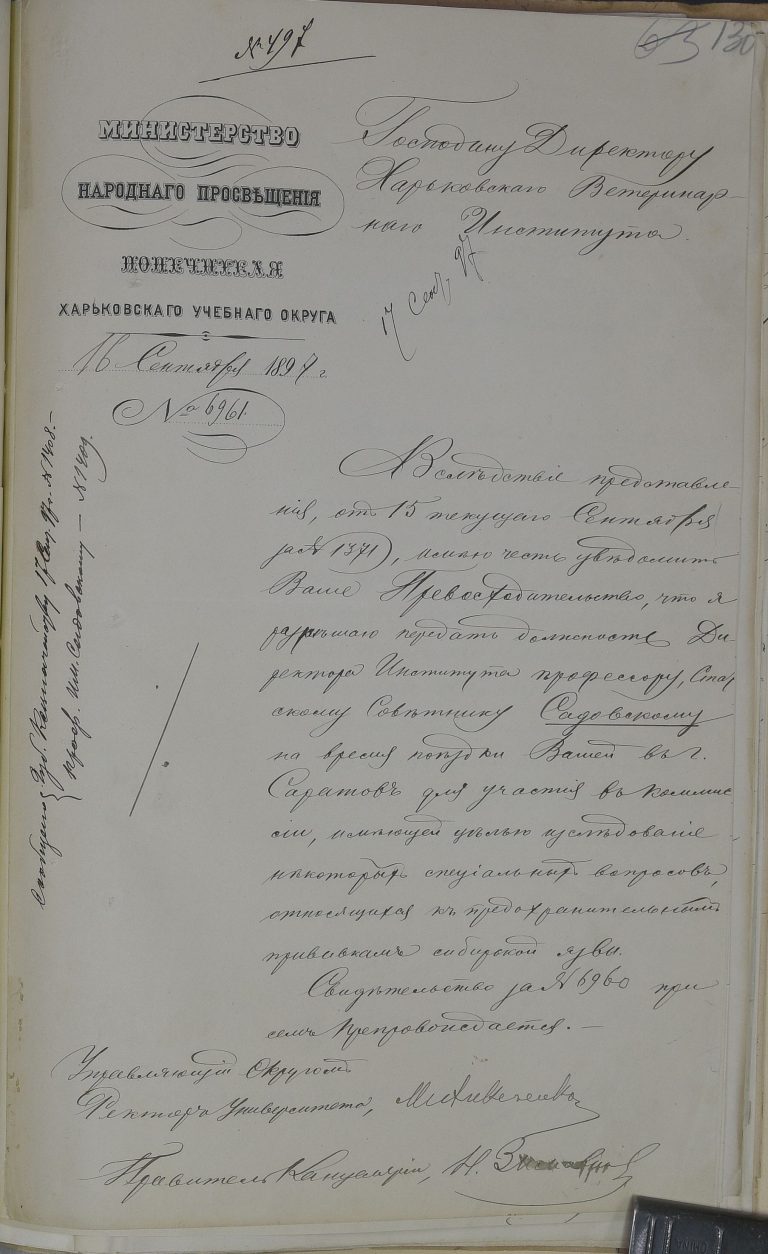 № 497
63 130
МИНИСТЕРСТВО
НАРОДНАГО ПРОСВѢЩЕНІЯ
ПОПЕЧИТЕЛЯ
ХАРЬКОВСКАГО УЧЕБНАГО ОКРУГА
16 Сентября 1897 г.
№ 6961.
Господину Директору
Харьковскаго Ветеринар-
наго Института.
17 Сент. 97
Вслѣдствіе представле-
нія, отъ 15 текущаго Сентября
за № 1371, имѣю честь увѣдомить
Ваше Превосходительство, что я
разрѣшаю передать должность Ди-
ректора Института профессору, Стат-
скому Совѣтнику Садовскому
на время поѣздки Вашей въ г.
Саратовъ для участія въ коммис-
сіи, имѣющей цѣлью изслѣдованіе
нѣкоторыхъ спеціальныхъ вопросовъ,
относящихся къ предохранительнымъ
прививкамъ сибирской язвы.
Свидѣтельство за № 6960 при
семъ препровождается. —
Управляющій Округомъ
Ректоръ Университета,
Правитель Канцеляріи, Н.
Сообщено 17 Сент. 97 г. № 1408. —
проф. Садовскому — № 1409.